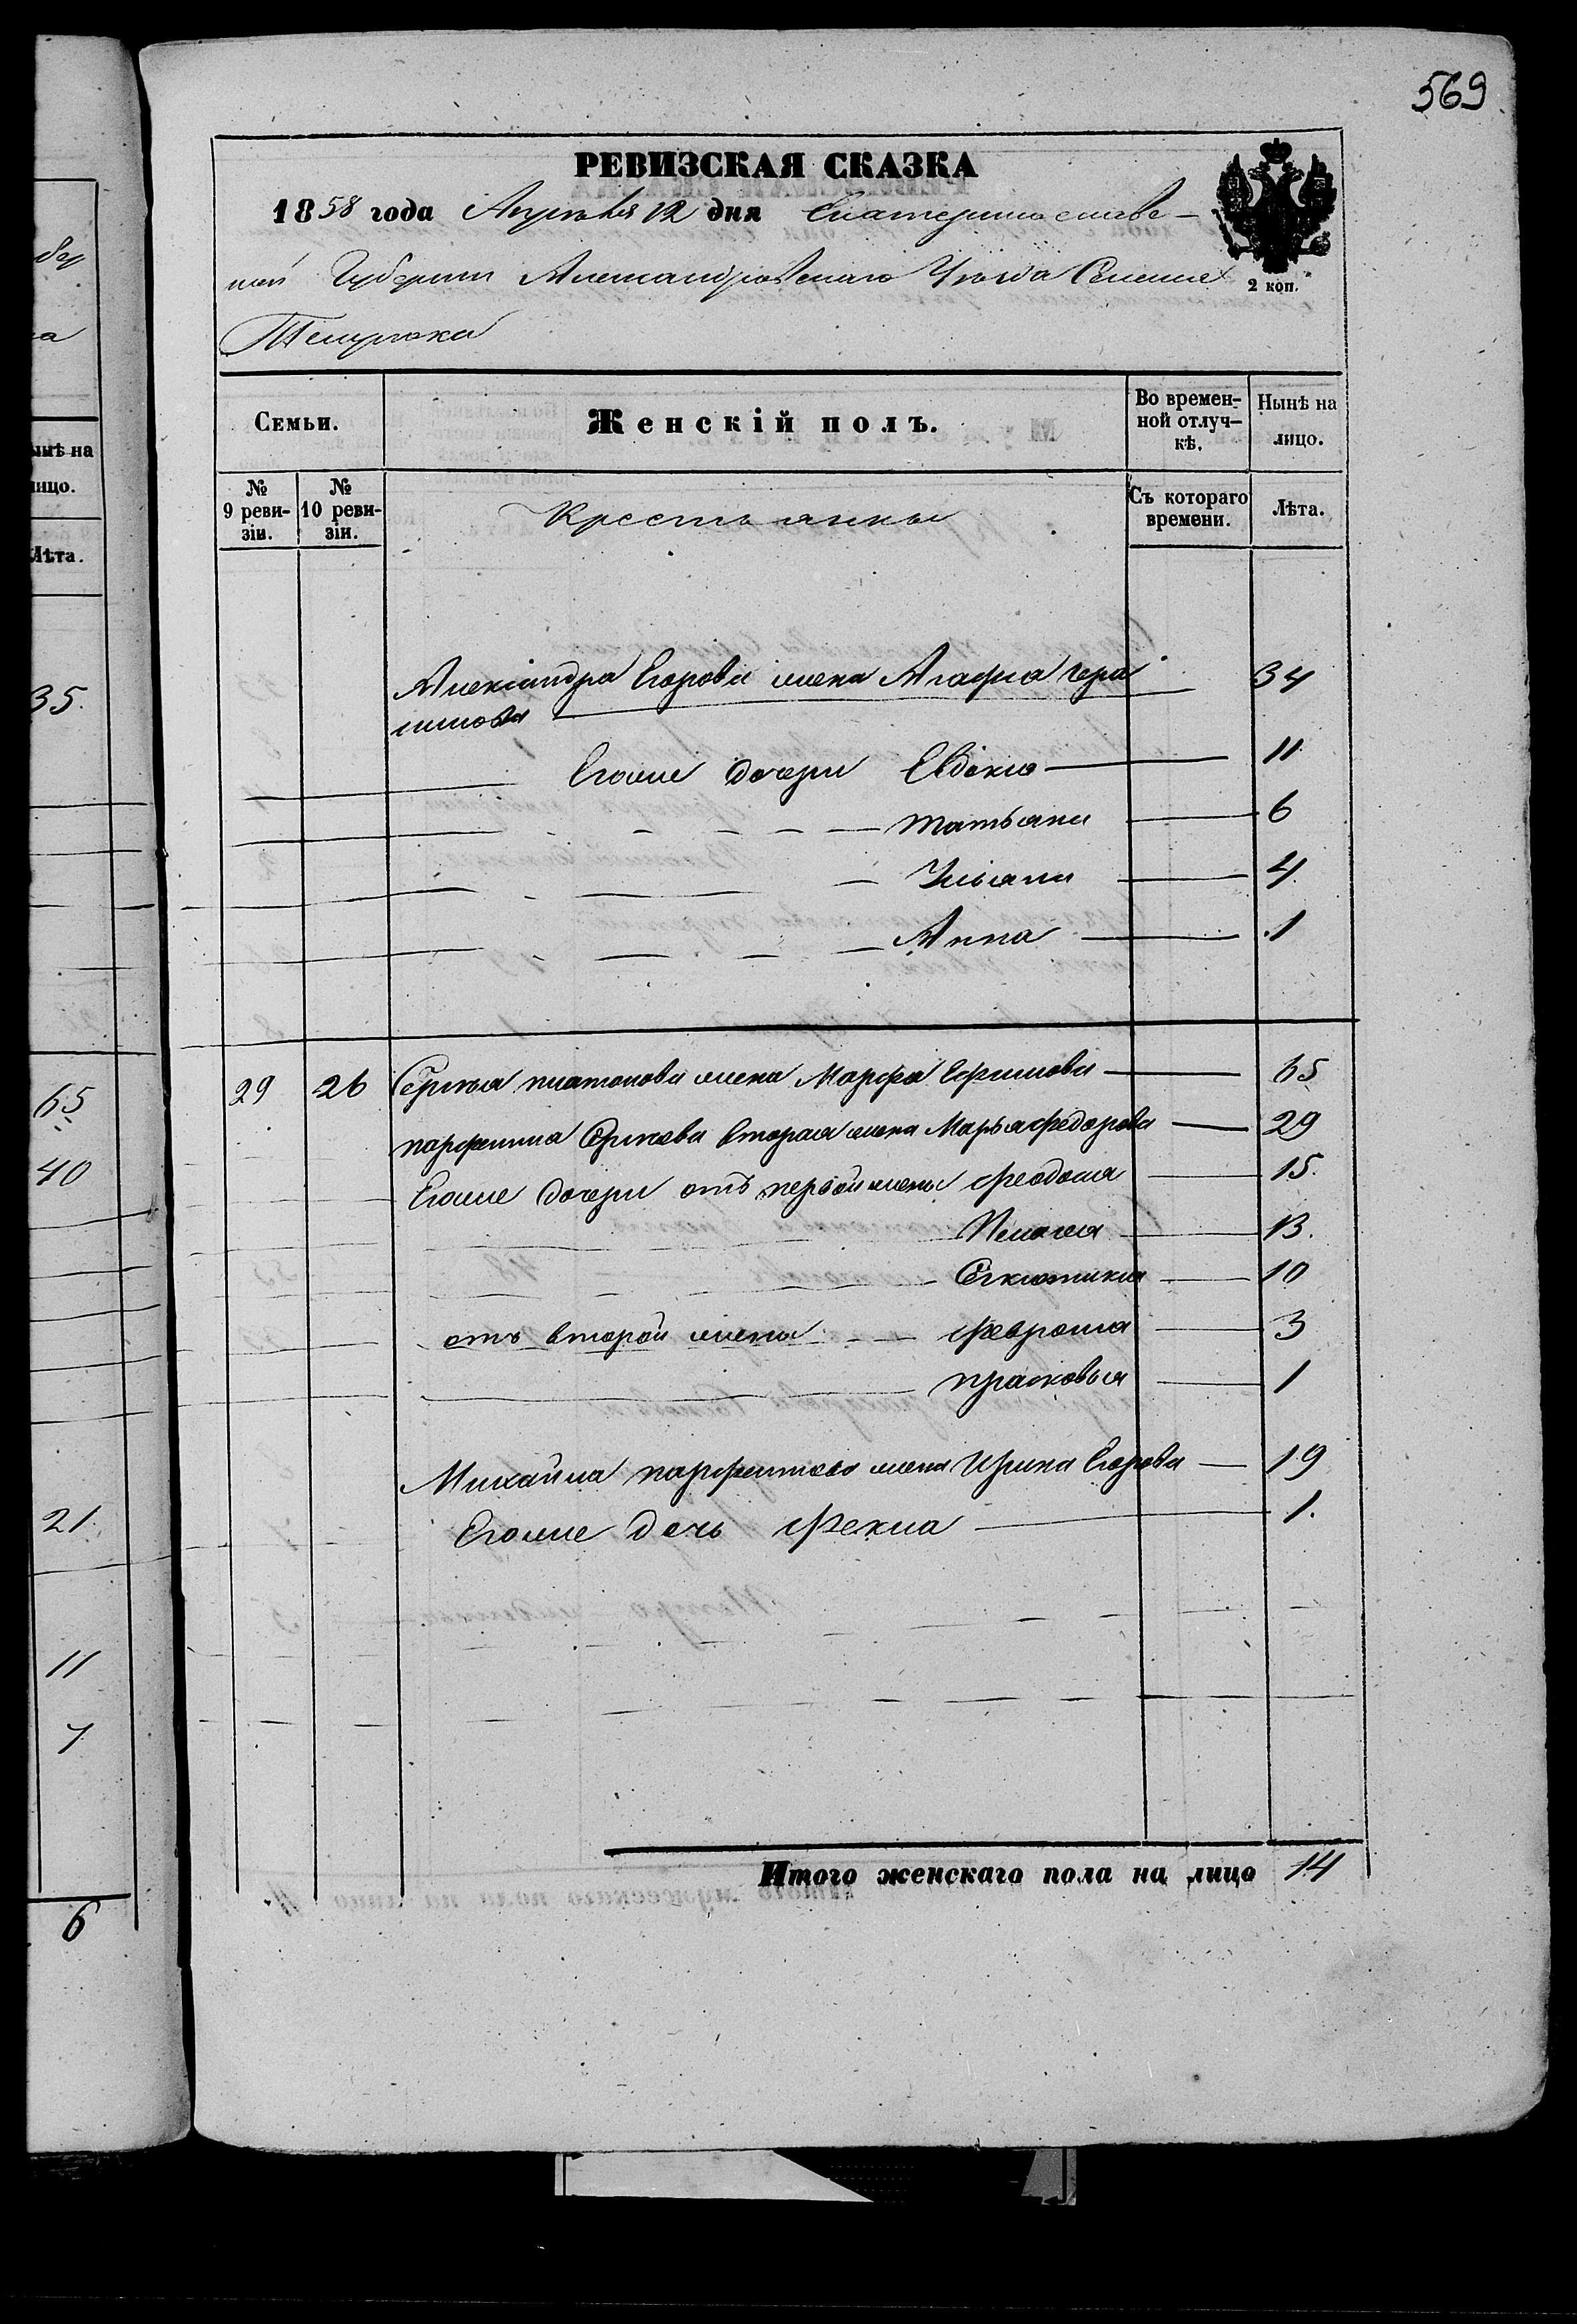 569
РЕВИЗСКАЯ СКАЗКА
1858 года Апреля 12 дня Екатеринославс-
кой Губернии Александровскаго Уѣзда Селенiе
Темрюка
2 коп.
Семьи.
Женскій полъ.
Во времен-
ной отлуч-
кѣ.
Нынѣ на
лицо.
№
9 реви-
зіи.
№
10 реви-
зіи.
Крестьянки
Съ котораго
времени.
Лѣта.
Александра Егорова жена Агафiя Гера
симова 34
Егоже дочери Евдокiя 11
татьяна 6
Ульяна 4
Анна 1
29 26 Сергѣя платонова жена Марфа Ефимова 65
парфентiя Сергѣева вторая жена Марья федорова 29
Егоже дочери отъ первой жены феодосiя 15
Пелагея 13.
10
отъ второй жены феврония 3
прасковья 1
Михайла парфентiева жена Ирина Егорова 19
Егоже дочь фекла 1.
Итого женскаго пола на лицо 14
бер
а
ынѣ на
лицо.
Лѣта.
35.
65
40
21.
11
7
6